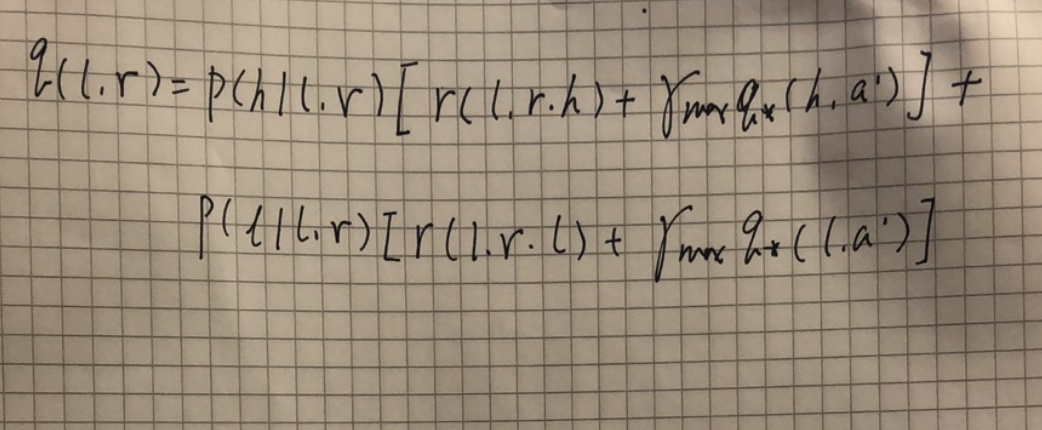 q(l,r)=p(h|l,r)[r(l,r,h)+γmax q*(h,a')]+
p(l|l,r)[r(l,r,l)+γmax q*(l,a')]